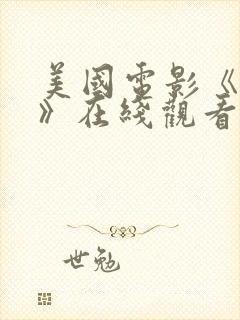 美國電影《
》在綫觀看
世勉